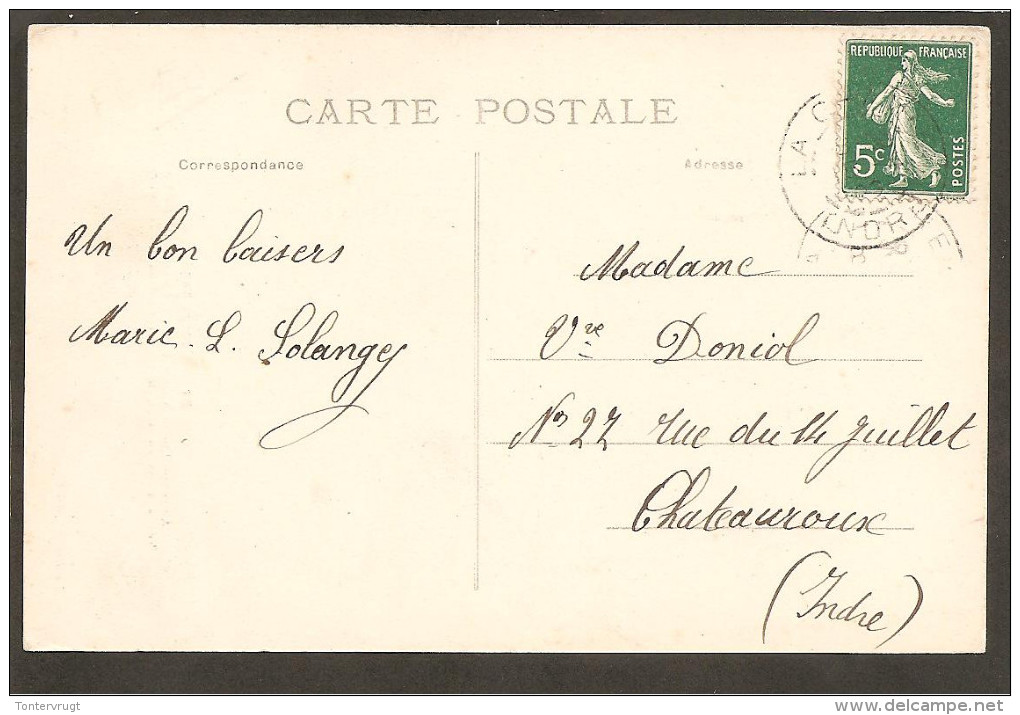 CARTE POSTALE
Correspondance
Adresse
REPUBLIQUE FRANÇAISE
5c
POSTES
INDRE
Un bon baisers
Marie. L. Solange
Madame
Vve Doniol
No 27 rue du 14 juillet
Chateauroux
(Indre)
Tontervrugt
delcampe.net